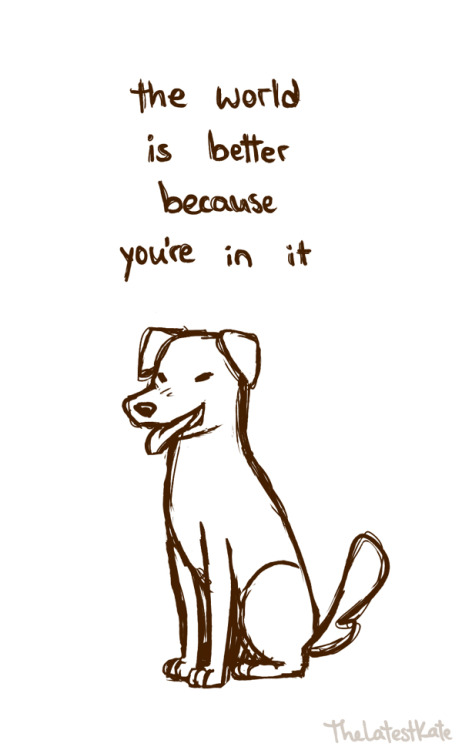 the world
is better
because
you're in it
TheLatestKate